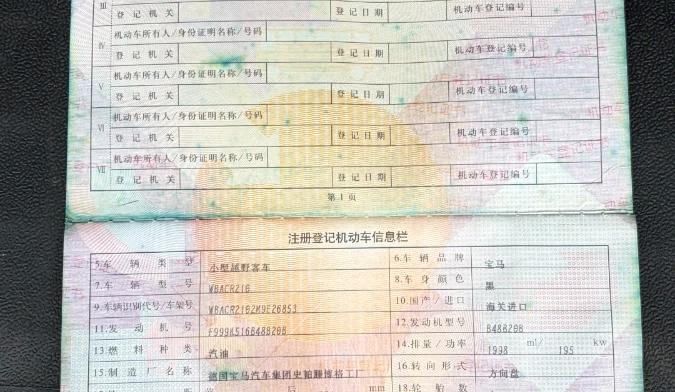 III
登记机关 登记日期 机动车登记编号
机动车所有人/身份证明名称/号码
IV
登记机关 登记日期 机动车登记编号
机动车所有人/身份证明名称/号码
V
登记机关 登记日期 机动车登记编号
机动车所有人/身份证明名称/号码
VI
登记机关 登记日期 机动车登记编号
机动车所有人/身份证明名称/号码
VII
登记机关 登记日期 机动车登记编号
第1页
注册登记机动车信息栏
5.车辆类型 小型越野客车 6.车辆品牌 宝马
7.车辆型号 WBACR216 8.车身颜色 黑
9.车辆识别代号/车架号 WBACR2162M9E26853 10.国产/进口 海关进口
11.发动机号 12.发动机型号 B48B20B
13.燃料种类 汽油 14.排量/功率 1998 ml/ 195 kw
15.制造厂名称 德国宝马汽车集团史帕滕博格工厂 16.转向形式 方向盘
mm 18.轮胎数